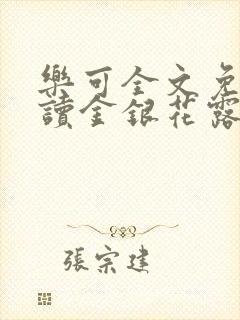 樂可全文免
讀金銀花露
張宗建